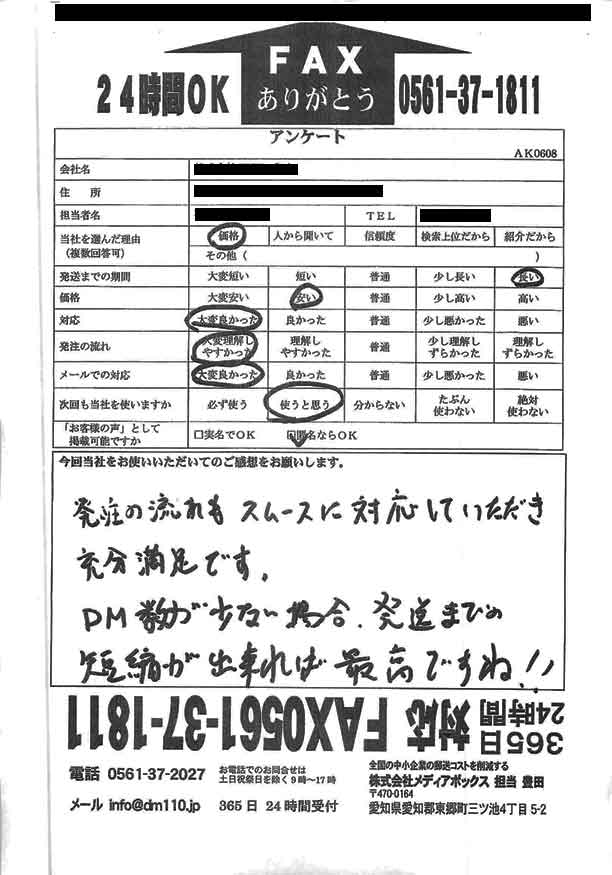 FAX
ありがとう
24時間OK
0561-37-1811
アンケート
AK0608
会社名
住 所
担当者名 TEL
当社を選んだ理由 (複数回答可) 価格 人から聞いて 信頼度 検索上位だから 紹介だから
その他 ( )
発送までの期間 大変短い 短い 普通 少し長い 長い
価格 大変安い 安い 普通 少し高い 高い
対応 大変良かった 良かった 普通 少し悪かった 悪い
発注の流れ 大変理解しやすかった 理解しやすかった 普通 少し理解しずらかった 理解しずらかった
メールでの対応 大変良かった 良かった 普通 少し悪かった 悪い
次回も当社を使いますか 必ず使う 使うと思う 分からない たぶん使わない 絶対使わない
「お客様の声」として掲載可能ですか □実名でOK □匿名ならOK
今回当社をお使いいただいてのご感想をお願いします。
発注の流れも スムースに対応していただき
充分満足です。
DM数が少ない場合、発送までの
短縮が出来れば最高ですね!!
365日24時間対応 FAX0561-37-1811
電話 0561-37-2027
お電話でのお問合せは
土日祝祭日を除く9時~17時
メール info@dm110.jp 365日24時間受付
全国の中小企業の郵送コストを削減する
株式会社メディアボックス 担当 豊田
〒470-0164
愛知県愛知郡東郷町三ツ池4丁目5-2